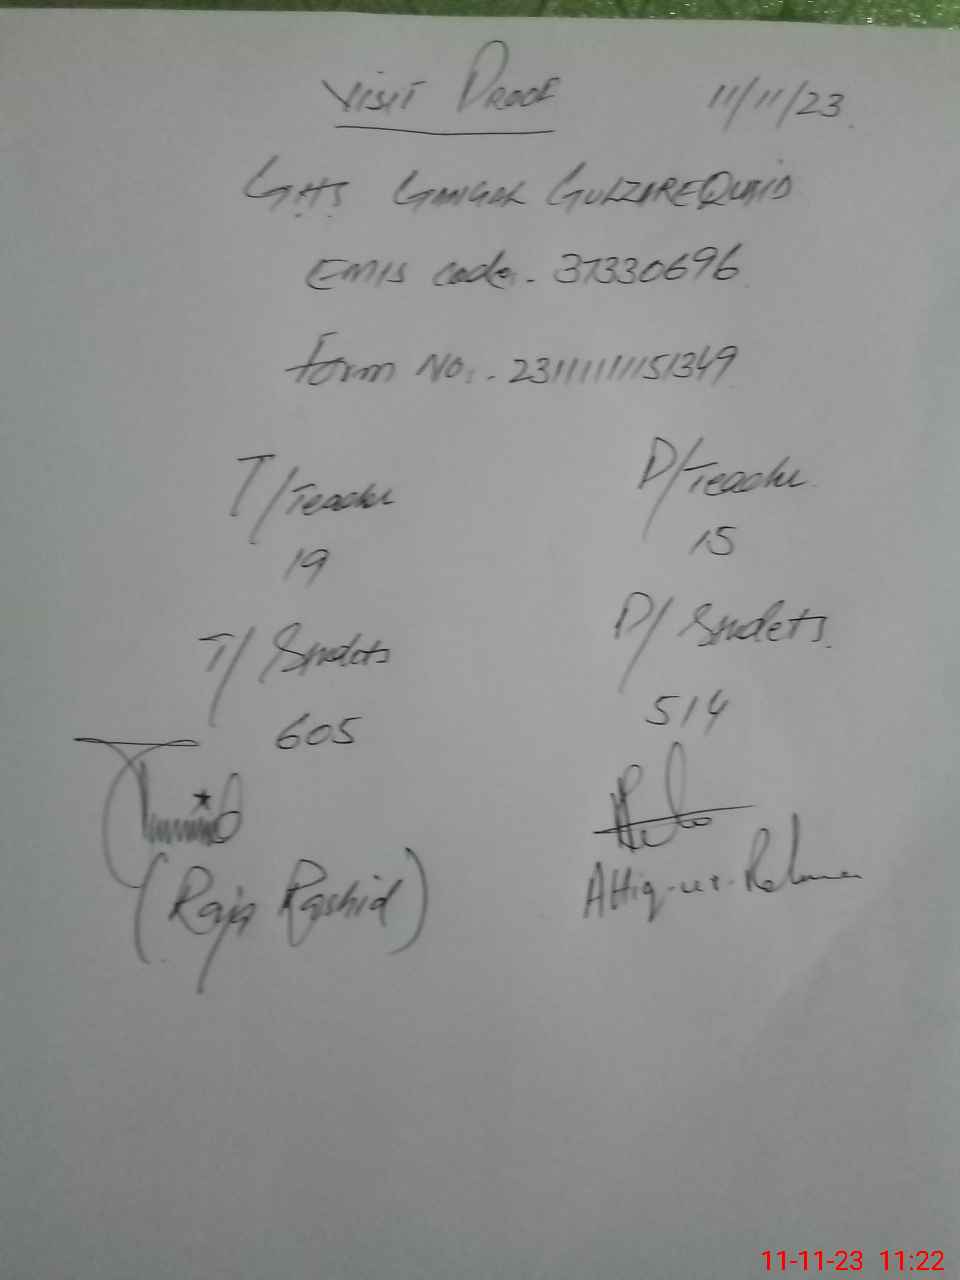 Visit Proof 11/11/23
GHS Gangal GulzareQuaid
Emis code. 37330696
Form No:. 231111111151349
T/Teacher P/Teacher
19 15
T/Studets P/Studets
605 514
(Raja Rashid) Attiq-ur-Rehman
11-11-23 11:22